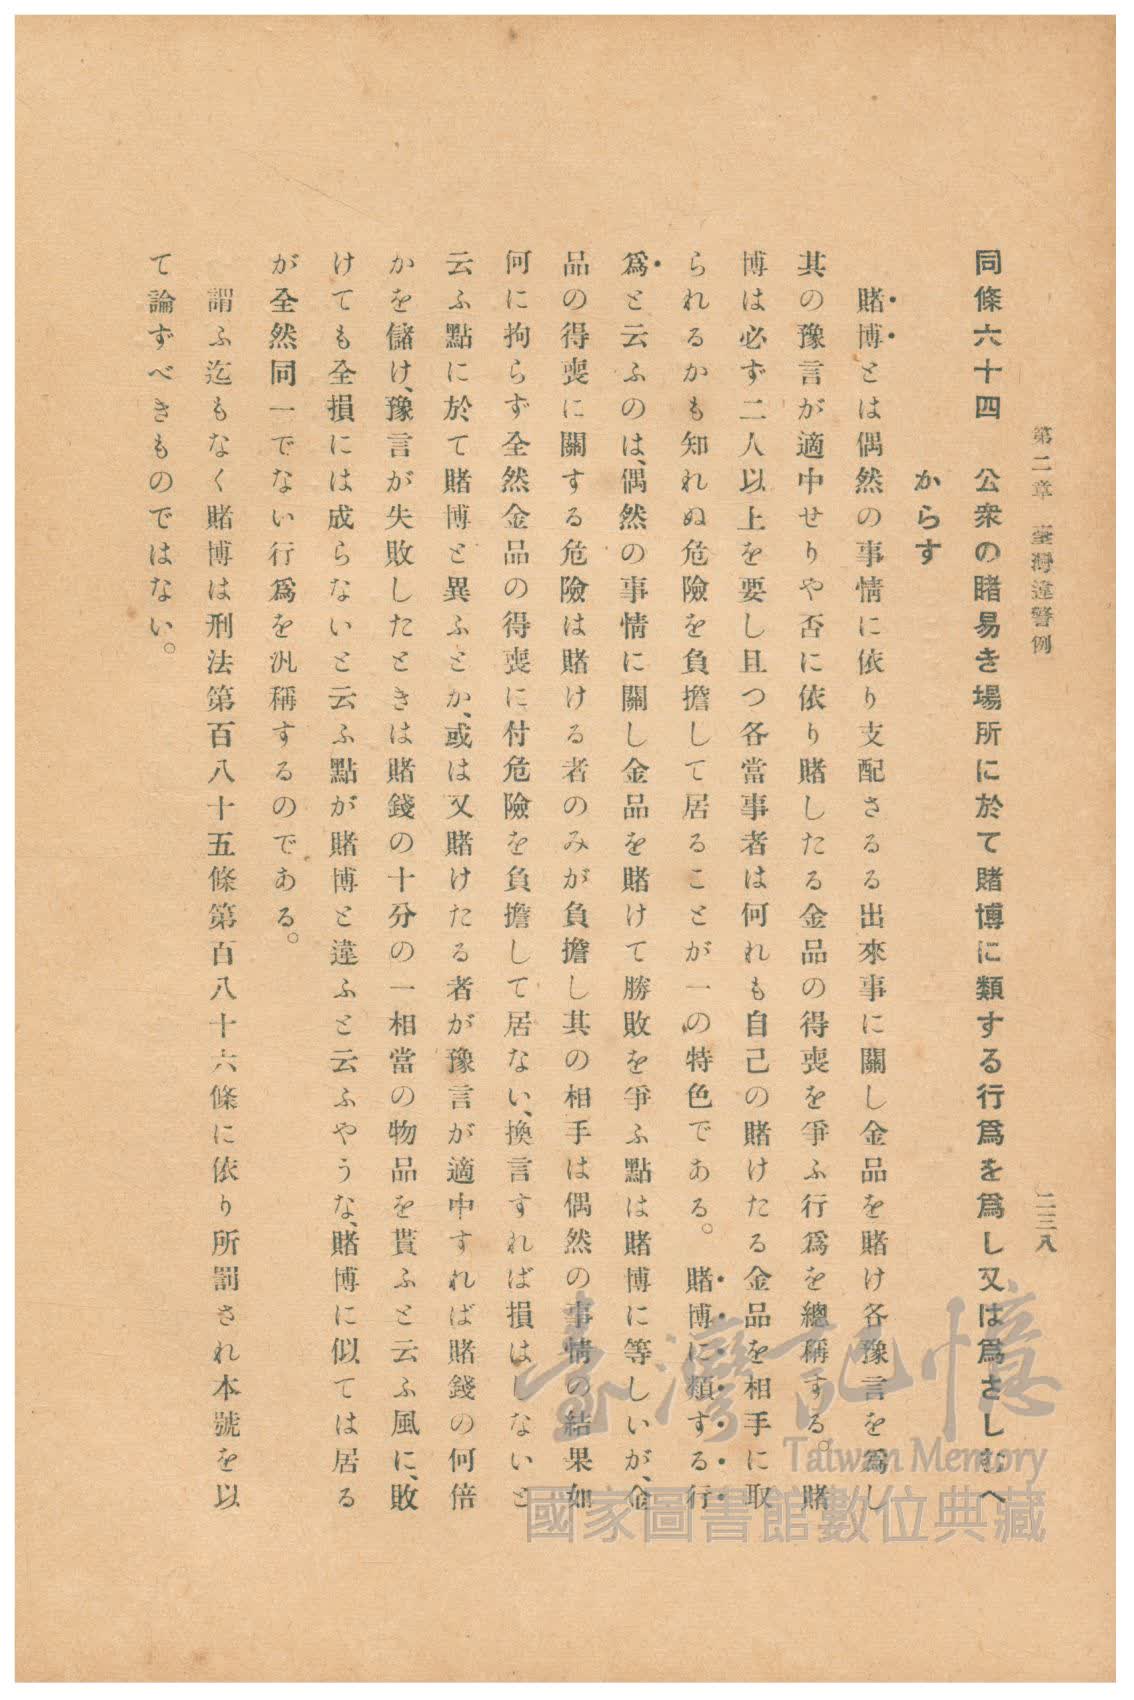 第二章　臺灣違警例
二三八
同條六十四　公衆の睹易き場所に於て賭博に類する行爲を爲し又は爲さしむへ
からす
賭博とは偶然の事情に依り支配さるる出來事に關し金品を賭け各豫言を爲し
其の豫言が適中せりや否に依り賭したる金品の得喪を爭ふ行爲を總稱する。賭
博は必ず二人以上を要し且つ各當事者は何れも自己の賭けたる金品を相手に取
られるかも知れぬ危險を負擔して居ることが一の特色である。　賭博に類する行
爲と云ふのは、偶然の事情に關し金品を賭けて勝敗を爭ふ點は賭博に等しいが、金
品の得喪に關する危險は賭ける者のみが負擔し其の相手は偶然の事情の結果如
何に拘らず全然金品の得喪に付危險を負擔して居ない、換言すれば損はしないと
云ふ點に於て賭博と異ふとか、或は又賭けたる者が豫言が適中すれば賭錢の何倍
かを儲け、豫言が失敗したときは賭錢の十分の一相當の物品を貰ふと云ふ風に、敗
けても全損には成らないと云ふ點が賭博と違ふと云ふやうな、賭博に似ては居る
が全然同一でない行爲を汎稱するのである。
謂ふ迄もなく賭博は刑法第百八十五條第百八十六條に依り所罰され本號を以
て論ずべきものではない。
臺灣記憶
Taiwan Memory
國家圖書館數位典藏